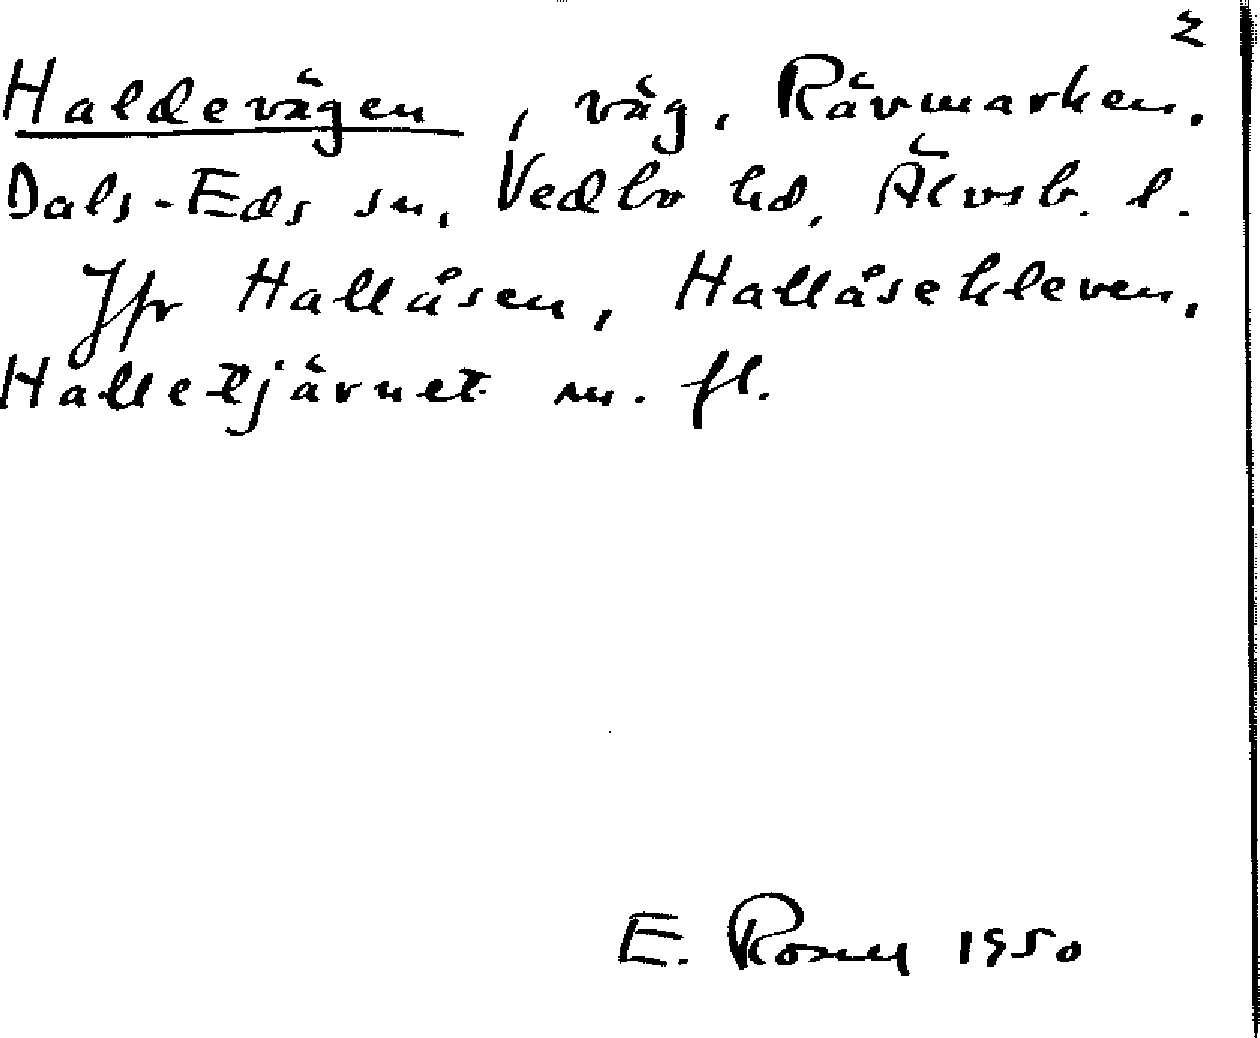 2
Haldevägen, väg, Rävmarken.
Dals-Eds sn, Vedbo hd, Älvsb. l.
Jfr Hallåsen, Hallåsekleven,
Halletjärnet m. fl.
E. 1950